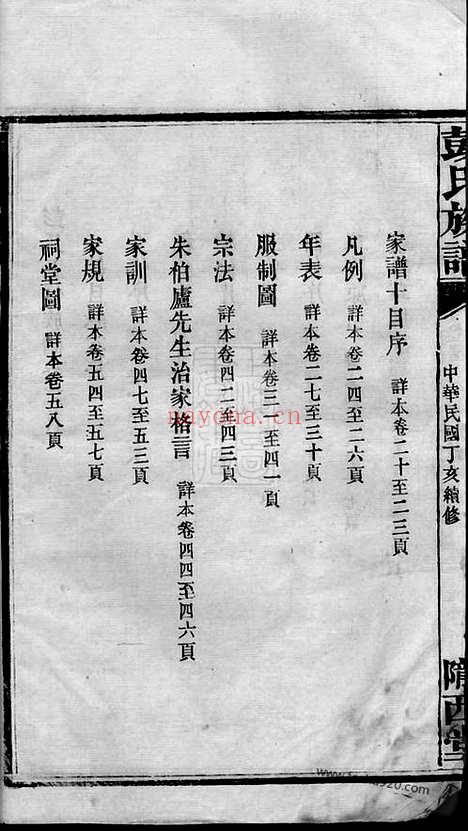 彭氏族譜
中華民國丁亥續修
隴西堂
家譜十目序 詳本卷二十至二三頁
凡例 詳本卷二四至二六頁
年表 詳本卷二七至三十頁
服制圖 詳本卷三一至四一頁
宗法 詳本卷四二至四三頁
朱伯廬先生治家格言 詳本卷四四至四六頁
家訓 詳本卷四七至五三頁
家規 詳本卷五四至五七頁
祠堂圖 詳本卷五八頁
nayona.cn